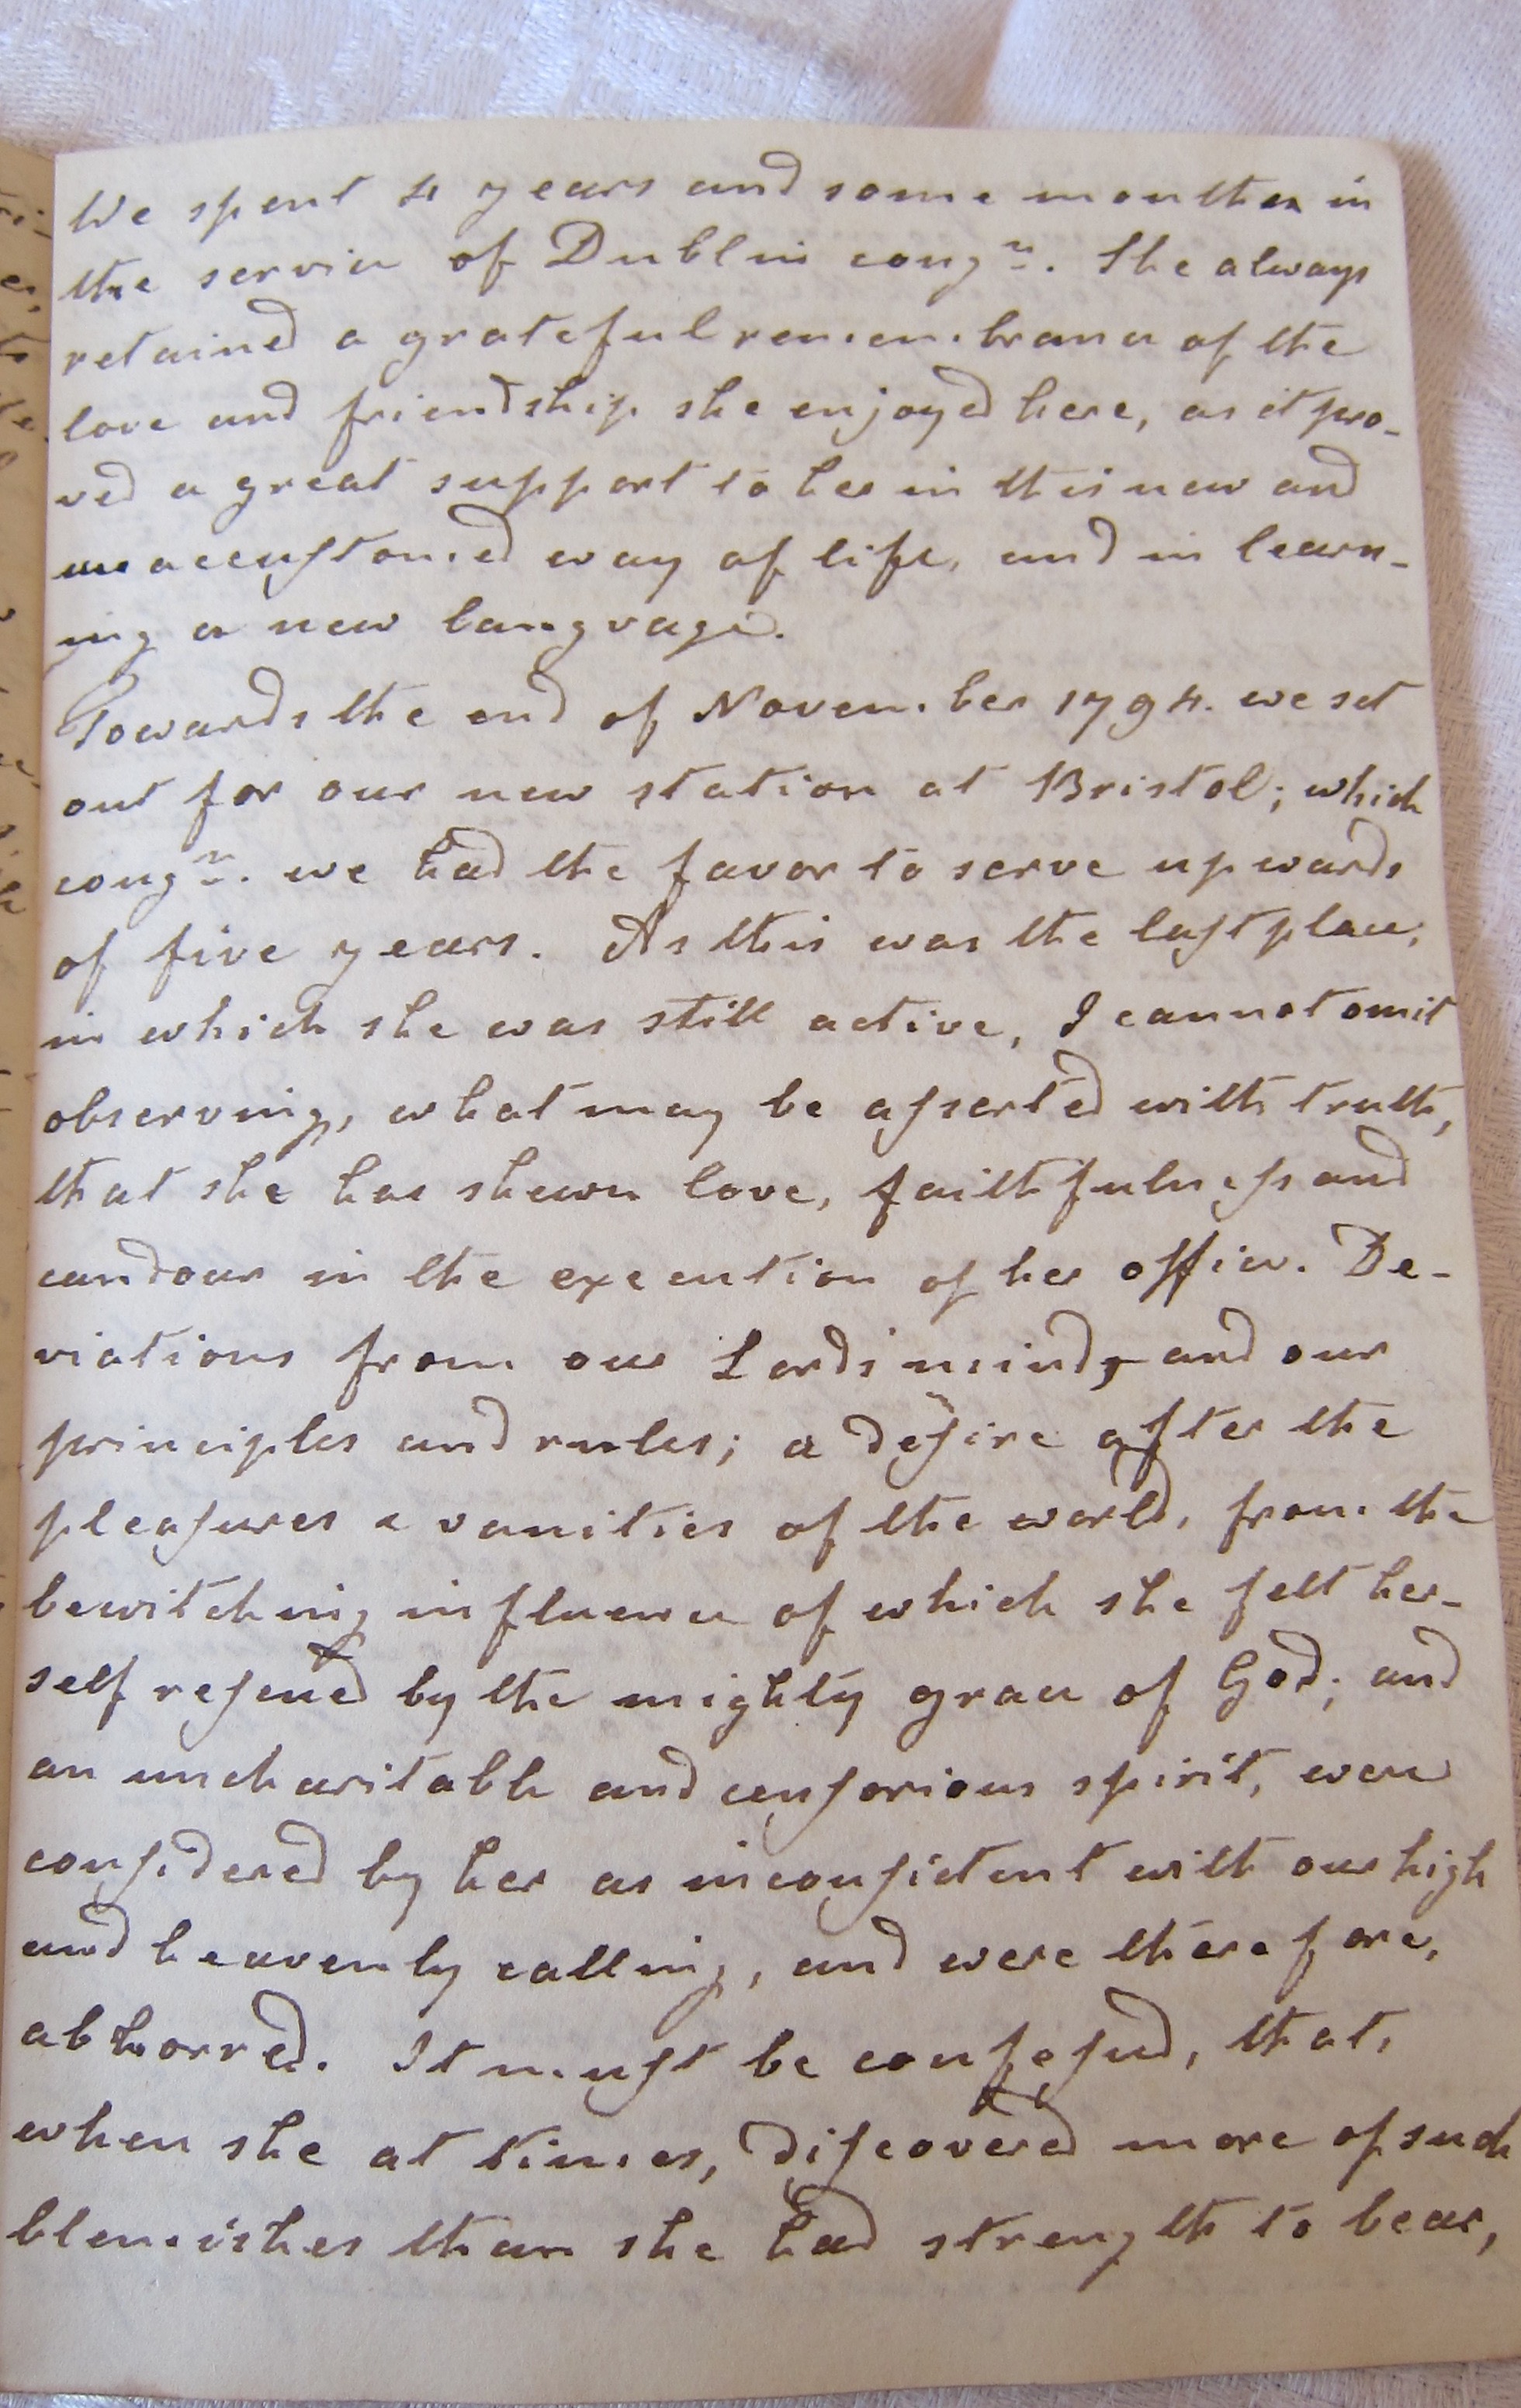 We spent 4 years and some months in
the service of Dublin congn. She always
retained a grateful remembrance of the
love and friendship she enjoyed here, as it pro-
ved a great support to her in this new and
unaccustomed way of life, and in learn-
ing a new language.
Towards the end of November 1794. we set
out for our new station at Bristol; which
congn. we had the favor to serve upwards
of five years. As this was the last place,
in which she was still active, I cannot omit
observing, what may be asserted with truth,
that she has shewn love, faithfulness and
candour in the execution of her office. De-
viations from our Lords mind, and our
principles and rules; a desire after the
pleasures & vanities of the world, from the
bewitching influence of which she felt her-
self rescued by the mighty grace of God; and
an uncharitable and censorious spirit, were
considered by her as inconsistent with our high
and heavenly calling, and were therefore,
abhorred. It must be confessed, that,
when she at times, discovered more of such
blemishes than she had strength to bear,